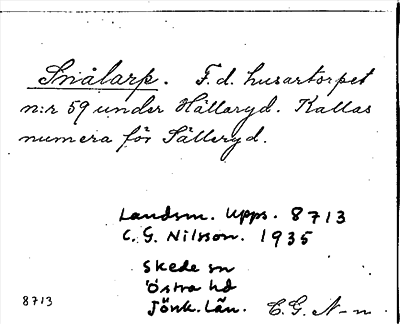 Snålarp. F.d. husartorpet
n:r 59 under Hälleryd. Kallas
numera för Sälleryd.
Landsm. Upps. 8713
C.G. Nilsson. 1935
Skede sn
Östra hd
Jönk. län.
8713
C.G. N-n